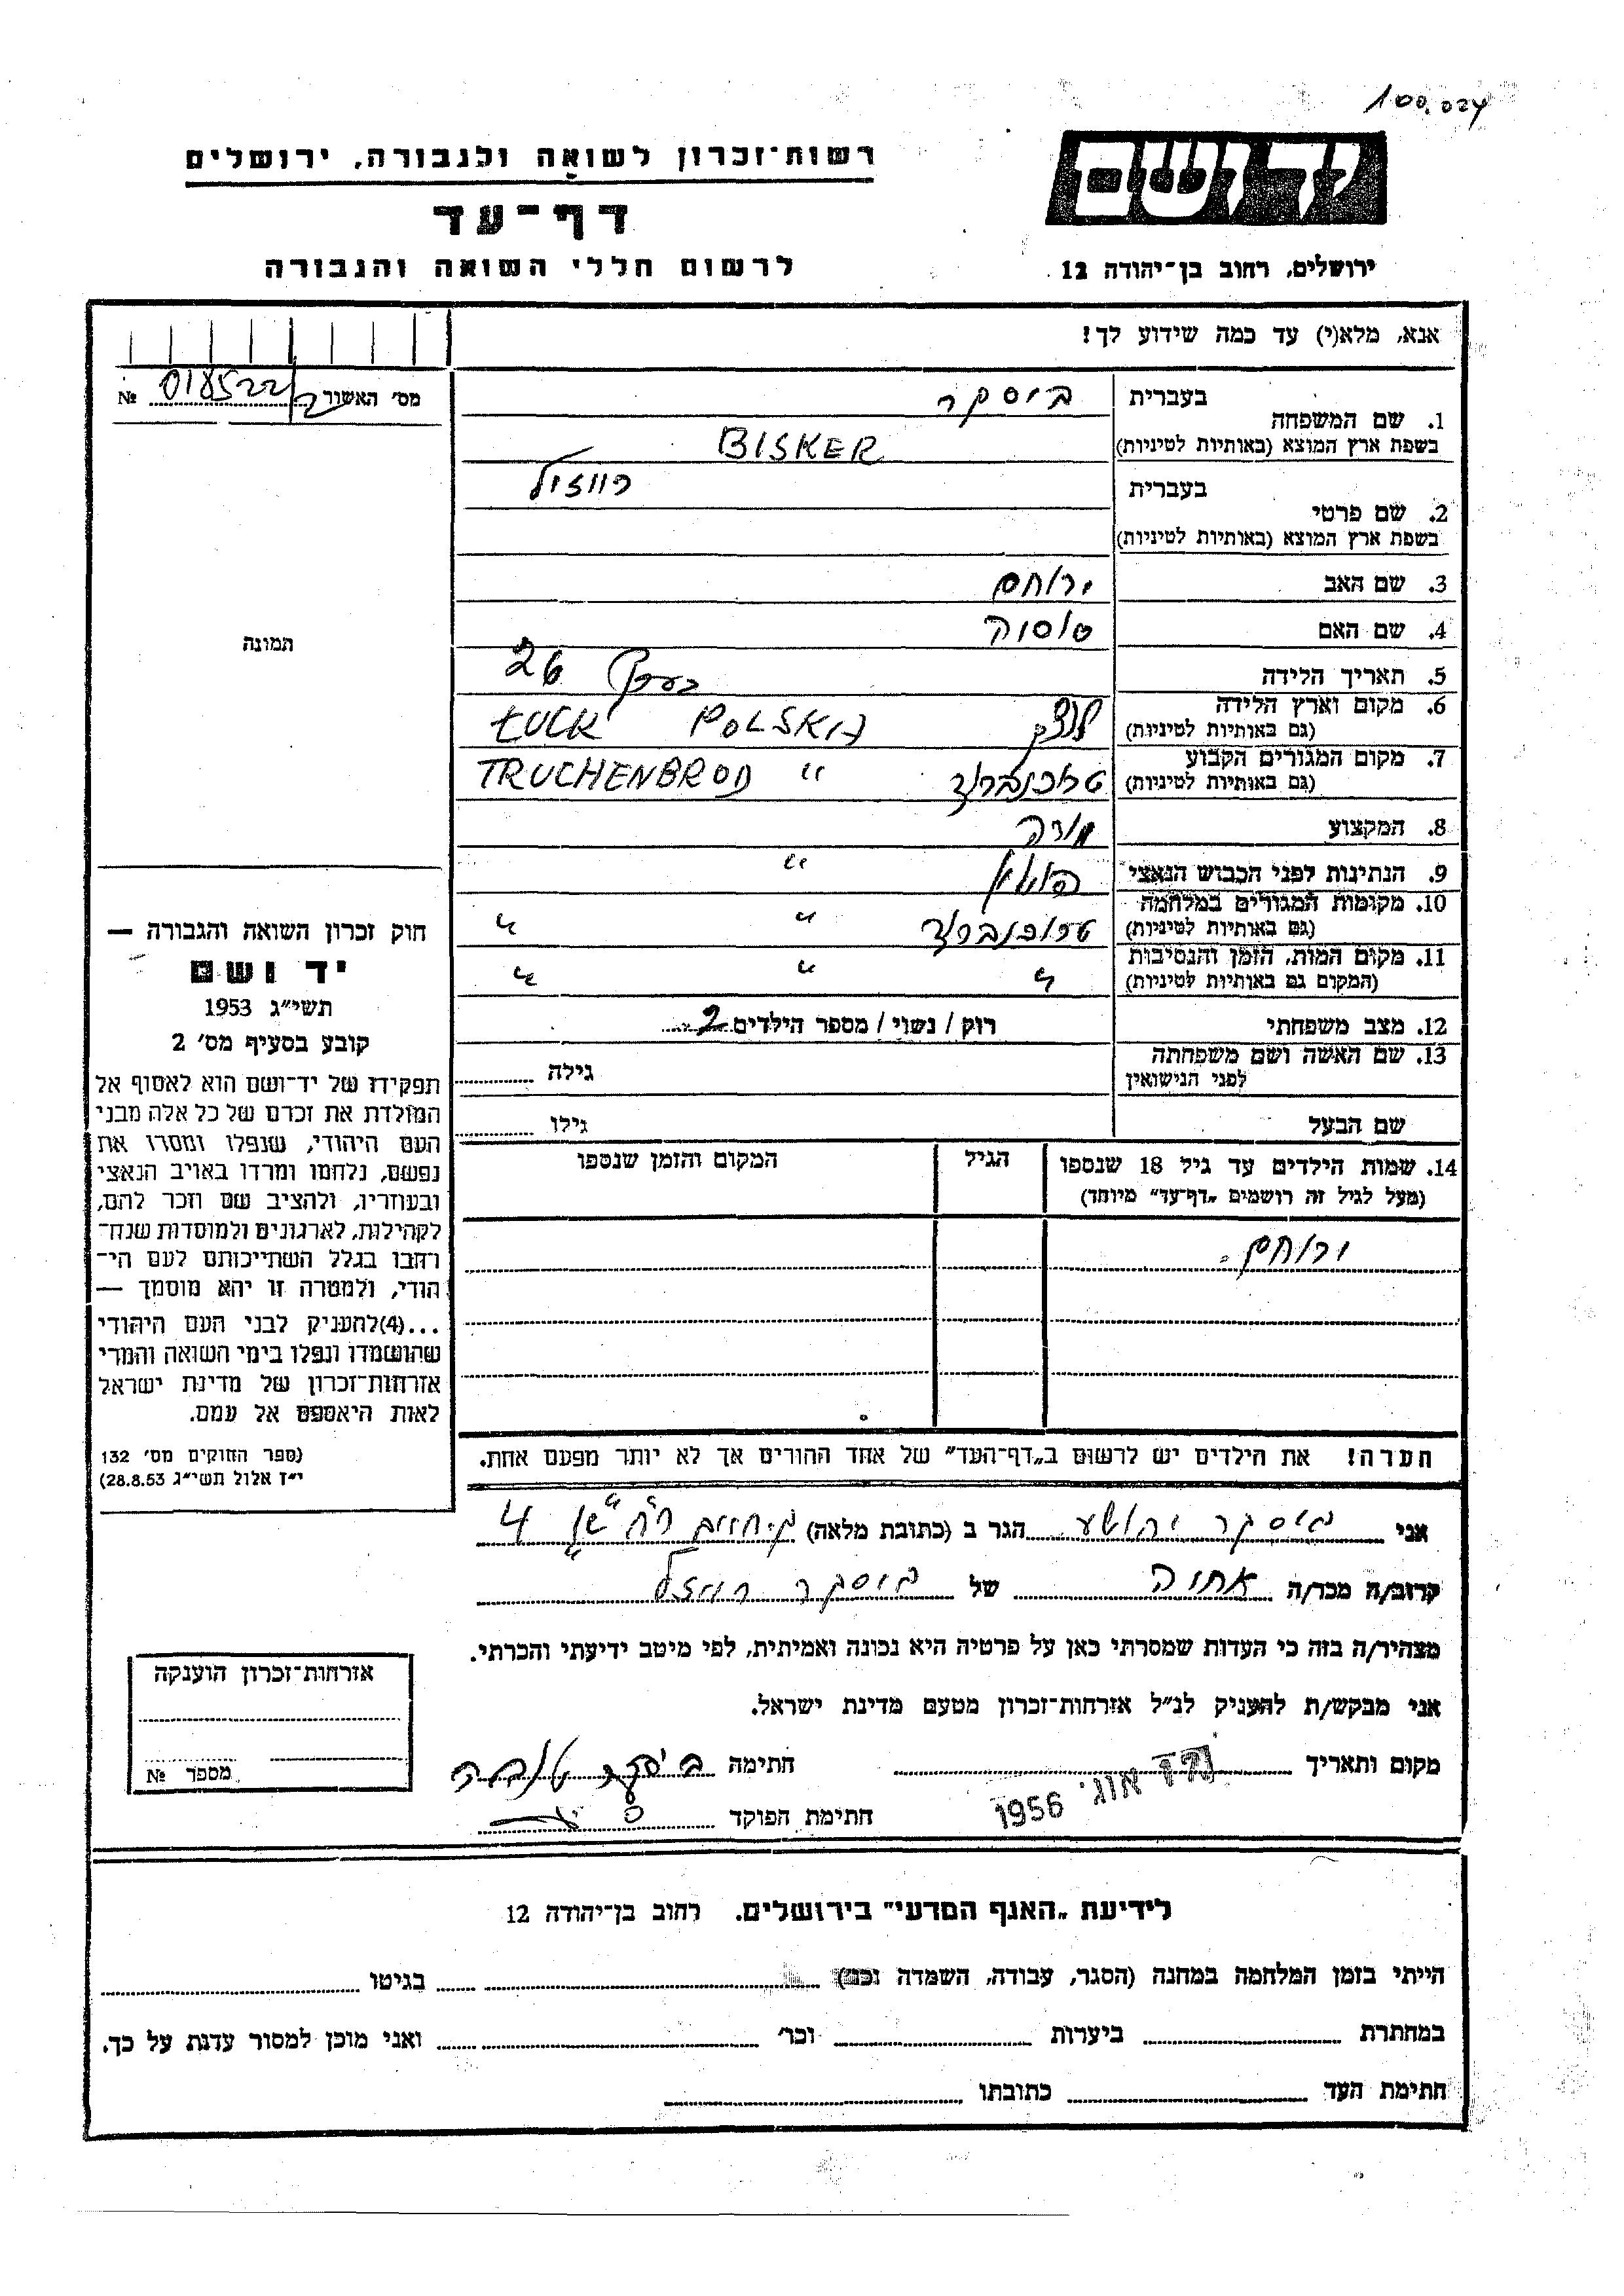 100.024
רשות־זכרון לשואה ולגבורה, ירושלים
יד ושם
דף־עד
לרשום חללי השואה והגבורה
ירושלים, רחוב בן־יהודה 12
אנא, מלא(י) עד כמה שידוע לך!
מס׳ האשור 018522/2 №
בעברית ביסקר
1. שם המשפחה
בשפת ארץ המוצא (באותיות לטיניות) BISKER
בעברית רייזיל
2. שם פרטי
בשפת ארץ המוצא (באותיות לטיניות)
3. שם האב ירוחם
4. שם האם
5. תאריך הלידה 26
6. מקום וארץ הלידה
(גם באותיות לטיניות) לוצק POLSKA ŁUCK
7. מקום המגורים הקבוע
(גם באותיות לטיניות) טרוכנברוד " TRUCHENBROD
8. המקצוע מורה
9. הנתינות לפני הכבוש הנאצי "
10. מקומות המגורים במלחמה
(גם באותיות לטיניות) טרוכנברוד " "
11. מקום המות, הזמן והנסיבות
(המקום גם באותיות לטיניות) " " "
12. מצב משפחתי רוק / נשוי / מספר הילדים 2
13. שם האשה ושם משפחתה
לפני הנישואין גילה
שם הבעל גילו
14. שמות הילדים עד גיל 18 שנספו הגיל המקום והזמן שנספו
(מעל לגיל זה רושמים „דף־עד״ מיוחד)
ירוחם.
הערה! את הילדים יש לרשום ב„דף־העד״ של אחד ההורים אך לא יותר מפעם אחת.
תמונה
חוק זכרון השואה והגבורה —
יד ושם
תשי״ג 1953
קובע בסעיף מס׳ 2
תפקידו של יד־ושם הוא לאסוף אל
המולדת את זכרם של כל אלה מבני
העם היהודי, שנפלו ומסרו את
נפשם, נלחמו ומרדו באויב הנאצי
ובעוזריו, ולהציב שם וזכר להם,
לקהילות, לארגונים ולמוסדות שנח־
רחבו בגלל השתייכותם לעם הי־
הודי, ולמטרה זו יהא מוסמך —
...(4)להעניק לבני העם היהודי
שהושמדו ונפלו בימי השואה והמרי
אזרחות־זכרון של מדינת ישראל
לאות היאספם אל עמם.
(ספר החוקים מס׳ 132
י״ז אלול תשי״ג 28.8.53)
אני ביסקר יהושע הגר ב (כתובת מלאה) ק. חיים רח׳ 4
קרוב/ה מכר/ה אחיה של ביסקר רייזל
מצהיר/ה בזה כי העדות שמסרתי כאן על פרטיה היא נכונה ואמיתית, לפי מיטב ידיעתי והכרתי.
אני מבקש/ת להעניק לנ״ל אזרחות־זכרון מטעם מדינת ישראל.
מקום ותאריך אוג׳ 1956 חתימה
חתימת הפוקד
אזרחות־זכרון הוענקה
מספר №
לידיעת „האגף המדעי״ בירושלים. רחוב בן־יהודה 12
הייתי בזמן המלחמה במחנה (הסגר, עבודה, השמדה וכו׳) בגיטו
במחתרת ביערות וכו׳ ואני מוכן למסור עדות על כך.
חתימת העד כתובתו